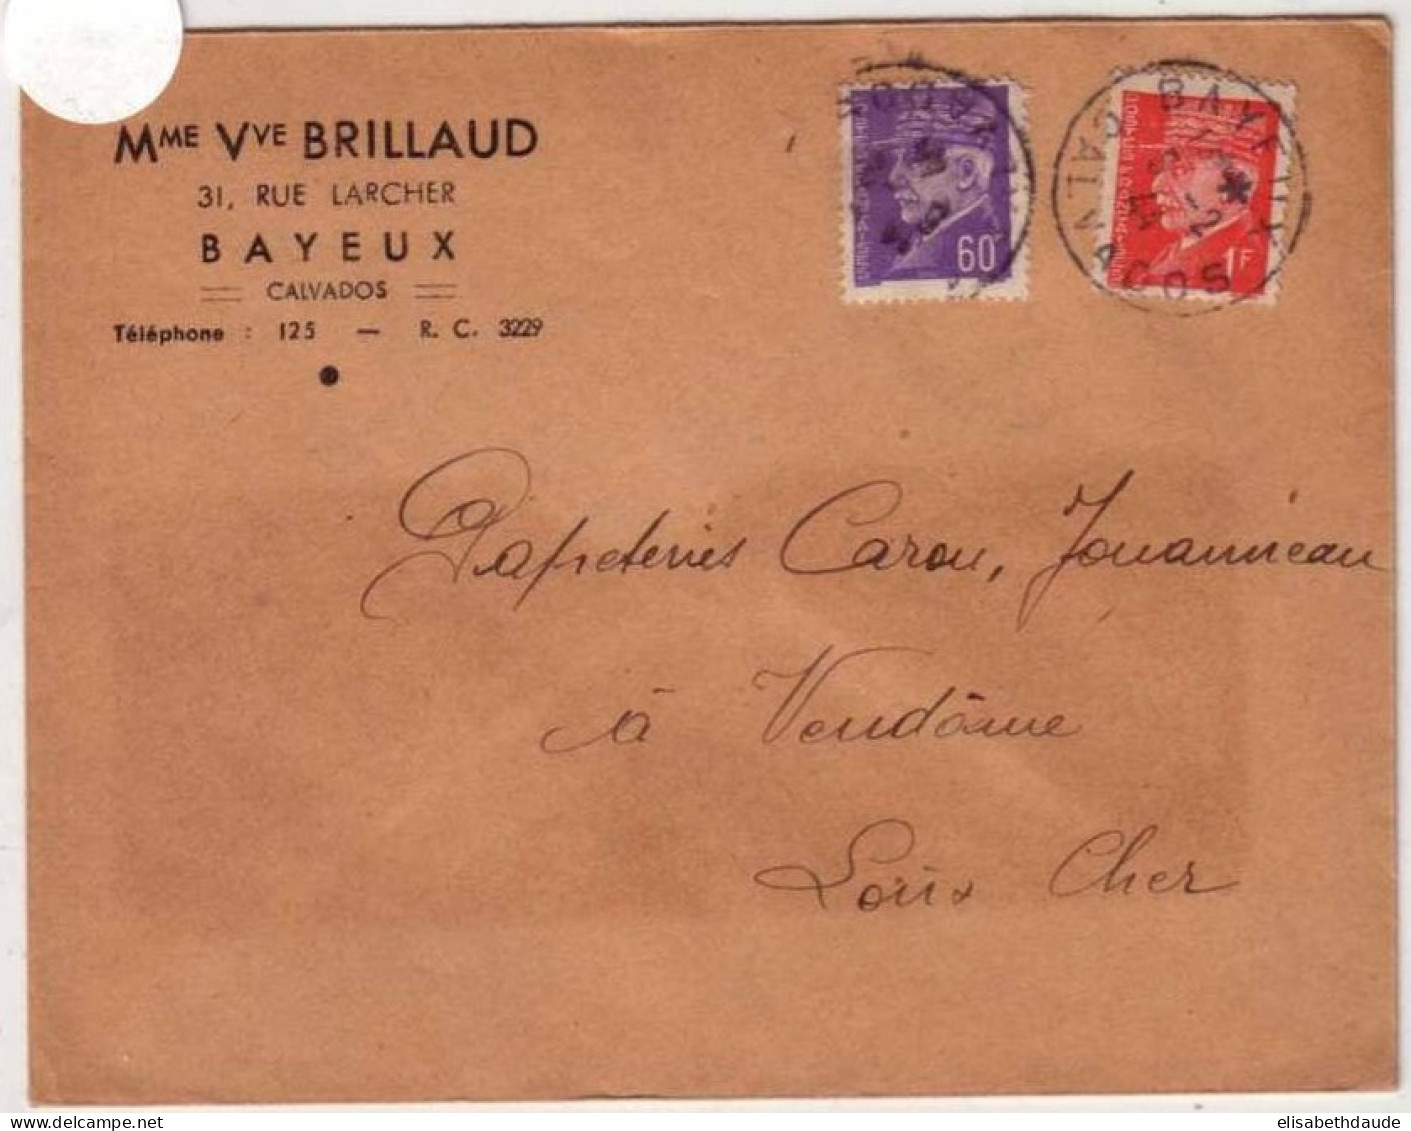 Mme Vve BRILLAUD
31, RUE LARCHER
BAYEUX
CALVADOS
Téléphone : 125 — R. C. 3229
60F
1F
BAYEUX
CALVADOS
Papeteries Caron, Jouanneau
à Vendôme
Loir x Cher
elisabethdaude